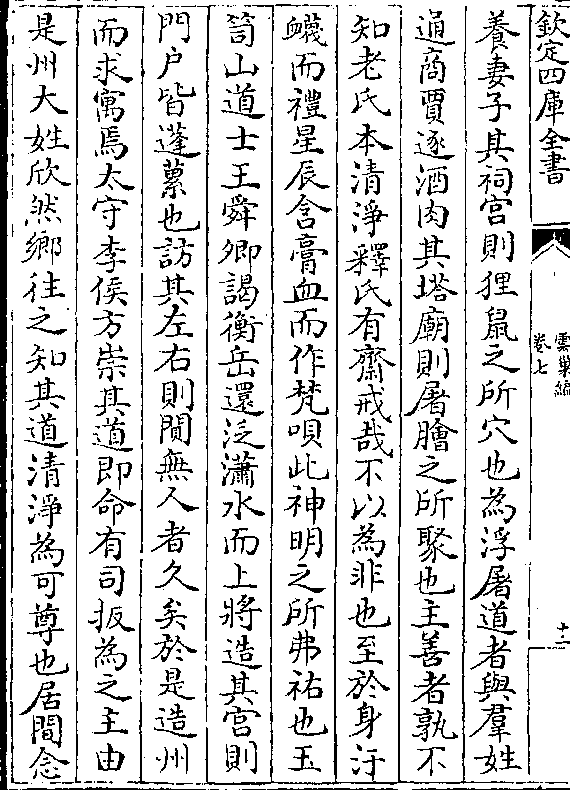 欽定四庫全書
雲巢編
卷七
十二
養妻子其祠宫則狸鼠之所穴也為浮屠道者與羣姓
通商賈逐酒肉其塔廟則屠膾之所聚也主善者孰不
知老氏本清淨釋氏有齋戒哉不以為非也至於身汙
衊而禮星辰含膏血而作梵唄此神明之所弗祐也玉
笥山道士王舜卿謁衡岳還泛瀟水而上將造其宫則
門户皆蓬藁也訪其左右則閴無人者久矣於是造州
而求寓焉太守李侯方崇其道即命有司扳為之主由
是州大姓欣然鄉往之知其道清淨為可尊也居間念